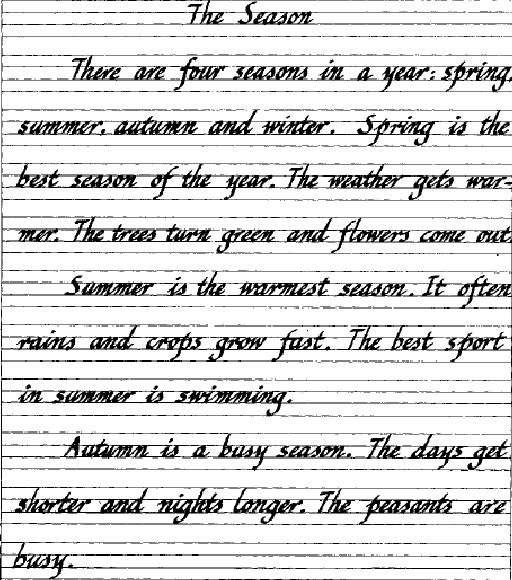 The Season
There are four seasons in a year: spring,
summer, autumn and winter. Spring is the
best season of the year. The weather gets war-
mer. The trees turn green and flowers come out.
Summer is the warmest season. It often
rains and crops grow fast. The best sport
in summer is swimming.
Autumn is a busy season. The days get
shorter and nights longer. The peasants are
busy.